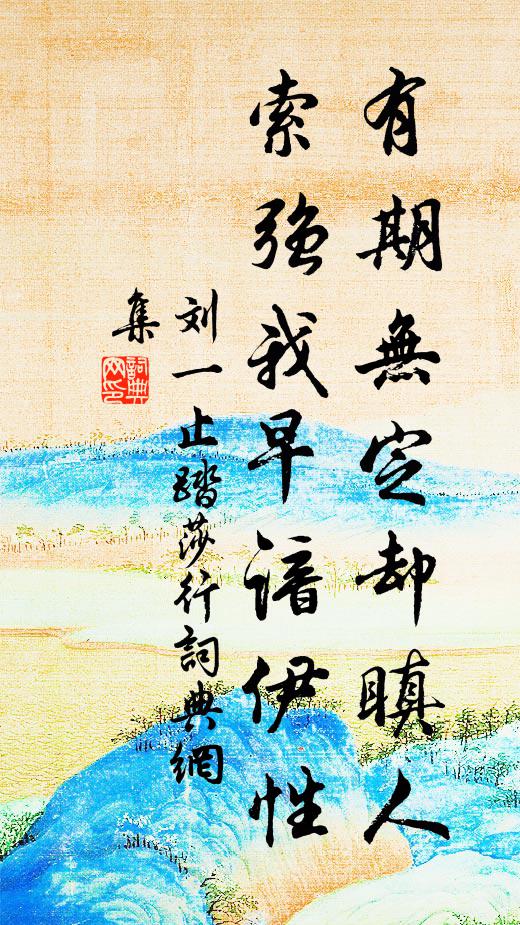 有期無定却瞋人
索強我早諳伊性
刘一止踏莎行詞典網
集
詞典網印